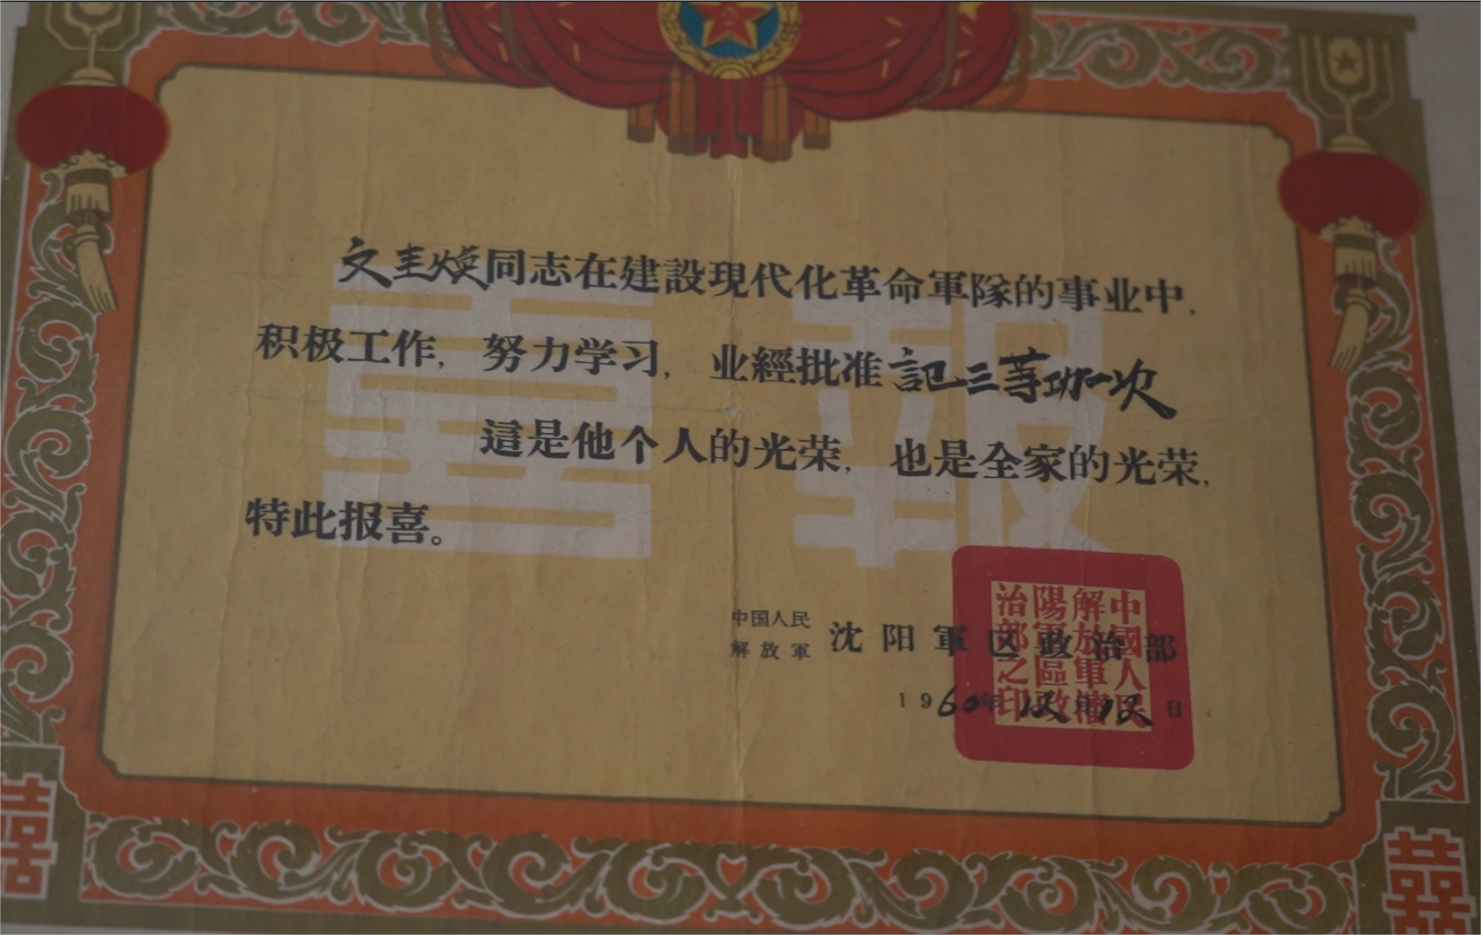 喜報
文圭焕同志在建設現代化革命軍隊的事业中，
积极工作，努力学习，业經批准記三等功一次
這是他个人的光荣，也是全家的光荣，
特此报喜。
中国人民
解放軍
沈阳軍区政治部
1960年12月12日
中國人民解放軍瀋陽軍區政治部之印
囍
囍